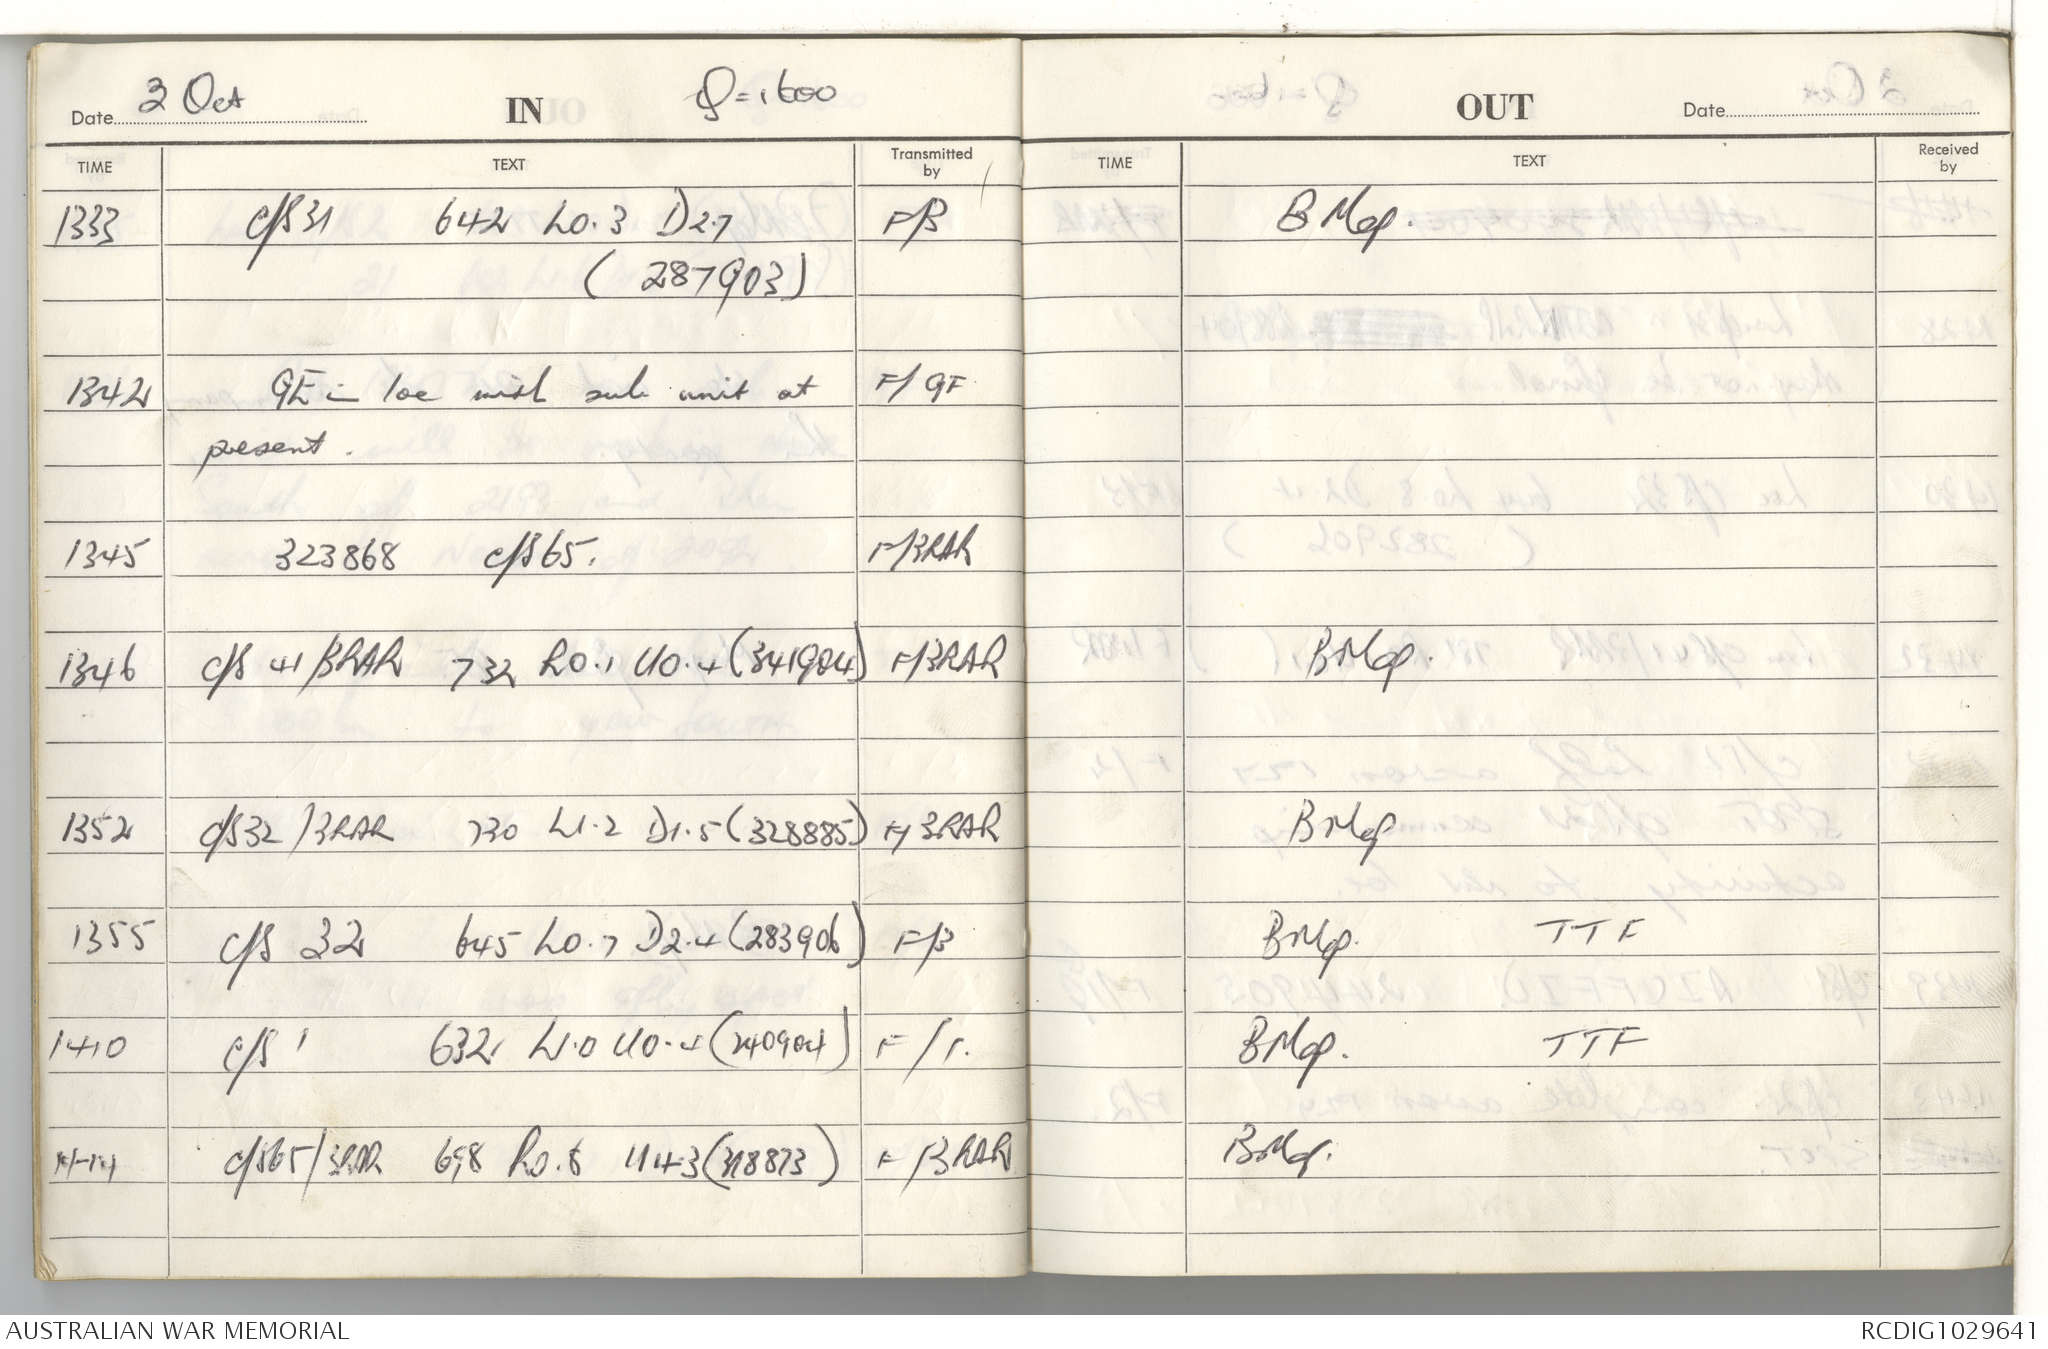 Date 3 Oct IN
TIME TEXT Transmitted by
1333 C/S 31 642 L0.3 D2.7 F/B BMap.
(287903)
1342 GF in loc with sub unit at F/GF
present.
1345 323868 C/S 65. F/3RAR
1346 C/S 41/3RAR 732 R0.1 U0.4 (341904) F/3RAR BMap.
1352 C/S 32/3RAR 730 L1.2 D1.5 (328885) F/3RAR BMap
1355 C/S 32 645 L0.7 D2.4 (283906) F/B BMap. TTF
1410 C/S 1 632 L1.0 U0.4 (240904) F/1. BMap. TTF
1414 C/S65/3RAR 698 R0.8 U4.3 (318873) F/3RAR BMap.
OUT Date
TIME TEXT Received by
AUSTRALIAN WAR MEMORIAL RCDIG1029641